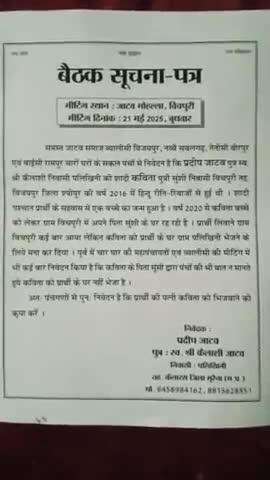 बैठक सूचना-पत्र
मीटिंग स्थान : जाटव मोहल्ला, विचपुरी
मीटिंग दिनांक : 21 मई 2025, बुधवार
समस्त जाटव समाज ब्यालीसी विजयपुर, नब्बे सबलगढ़, तेतीसी वीरपुर
एवं बाईसी रामपुर चारों घरों के सकल पंचों से निवेदन है कि प्रदीप जाटव पुत्र स्व.
श्री कैलाशी निवासी पलिखिनी की शादी कविता पुत्री मुंशी निवासी विचपुरी तह.
विजयपुर जिला श्योपुर की वर्ष 2016 में हिन्दू रीति-रिवाजों से हुई थी । शादी
पश्चात प्रार्थी के सहवास में एक बच्चे का जन्म हुआ है । वर्ष 2020 से कविता बच्चे
को लेकर ग्राम विचपुरी में अपने पिता मुंशी के घर रह रही है । प्रार्थी लिवाने ग्राम
विचपुरी कई बार आया लेकिन कविता को प्रार्थी के घर ग्राम पलिखिनी भेजने के
लिये मना कर दिया । पूर्व में चार घार की महापंचायतों एवं ब्यालीसी की मीटिंग में
भी कई बार निवेदन किया है कि कविता के पिता मुंशी द्वारा पंचों की भी बात न मानते
हुये कविता को प्रार्थी के घर नहीं भेजा है ।
अतः पंचगणों से पुनः निवेदन है कि प्रार्थी की पत्नी कविता को भिजवाने की
कृपा करें ।
निवेदक :
प्रदीप जाटव
पुत्र : स्व. श्री कैलाशी जाटव
निवासी : पलिखिनी
तह. कैलारस जिला मुरैना (म.प्र.)
मो. 6458984162, 8815628851